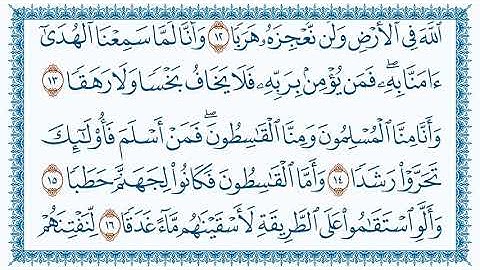 اللَّهَ فِي الْأَرْضِ وَلَن نُّعْجِزَهُ هَرَبًا ١٢ وَأَنَّا لَمَّا سَمِعْنَا الْهُدَىٰ
ءَامَنَّا بِهِ فَمَن يُؤْمِن بِرَبِّهِ فَلَا يَخَافُ بَخْسًا وَلَا رَهَقًا ١٣
وَأَنَّا مِنَّا الْمُسْلِمُونَ وَمِنَّا الْقَاسِطُونَ فَمَنْ أَسْلَمَ فَأُولَٰئِكَ
تَحَرَّوْا رَشَدًا ١٤ وَأَمَّا الْقَاسِطُونَ فَكَانُوا لِجَهَنَّمَ حَطَبًا ١٥
وَأَلَّوِ اسْتَقَامُوا عَلَى الطَّرِيقَةِ لَأَسْقَيْنَاهُم مَّاءً غَدَقًا ١٦ لِّنَفْتِنَهُمْ